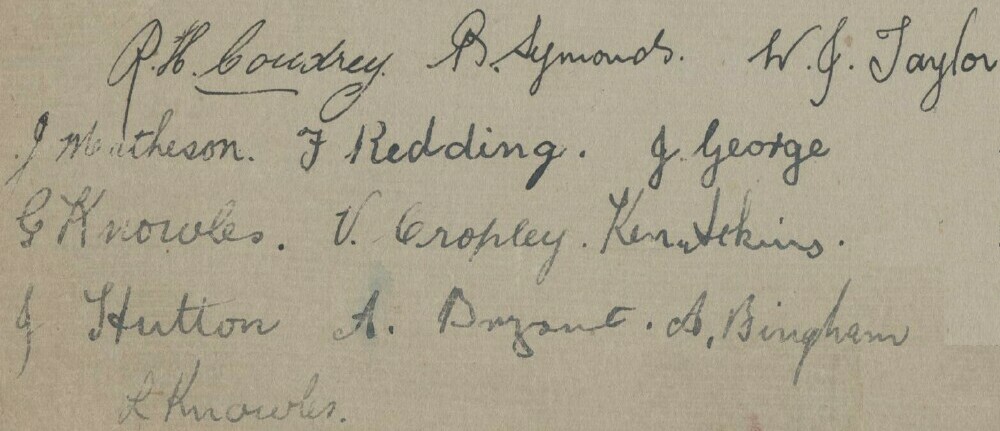 R. H. Coudrey. B. Symonds. W. J. Taylor
J Matheson. F Redding. J. George
G Knowles. V. Cropley. Ken Atkins.
J Hutton A. Bryant. A. Bingham
L Knowles.